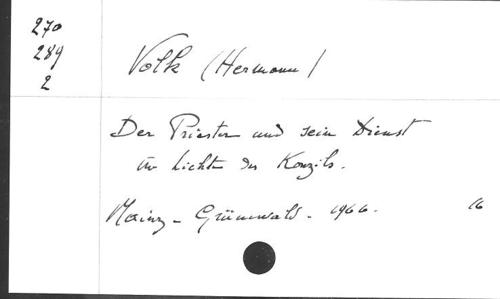 270
289
2
Volk (Hermann)
Der Priester und sein Dienst
im Lichte des Konzils.
Mainz - Grünewald - 1966.
16